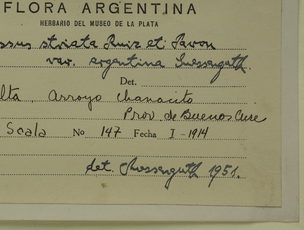 FLORA ARGENTINA
HERBARIO DEL MUSEO DE LA PLATA
ssus striata Ruiz et Pavon
var. argentina Suesseguth.
Det.
lta, Arroyo Chanacito
Prov. de Buenos Aire
Scala No 147 Fecha I-1914
det. Rossenguth 1951.